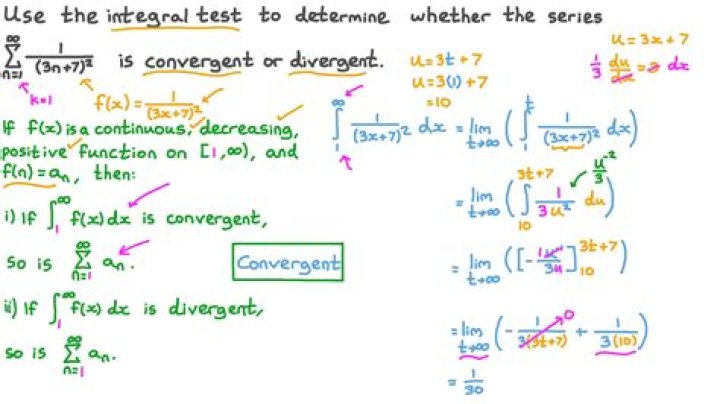 Use the integral test to determine whether the series
∑_{n=1}^{∞} 1/(3n+7)² is convergent or divergent.
k=1
f(x) = 1/(3x+7)²
If f(x) is a continuous, decreasing,
positive function on [1,∞), and
f(n) = aₙ, then:
i) If ∫_1^∞ f(x) dx is convergent,
so is ∑_{n=1}^{∞} aₙ.
Convergent
ii) If ∫_1^∞ f(x) dx is divergent,
so is ∑_{n=1}^{∞} aₙ.
u = 3t + 7
u = 3(1) + 7
= 10
u = 3x + 7
1/3 du/dx = 3 dx
∫_1^∞ 1/(3x+7)² dx = lim_{t→∞} (∫_1^t 1/(3x+7)² dx)
u⁻²/3
= lim_{t→∞} (∫_{10}^{3t+7} 1/3u² du)
= lim_{t→∞} ([-1/3u]_{10}^{3t+7})
= lim_{t→∞} (-1/3(3t+7) + 1/3(10))
0
= 1/30